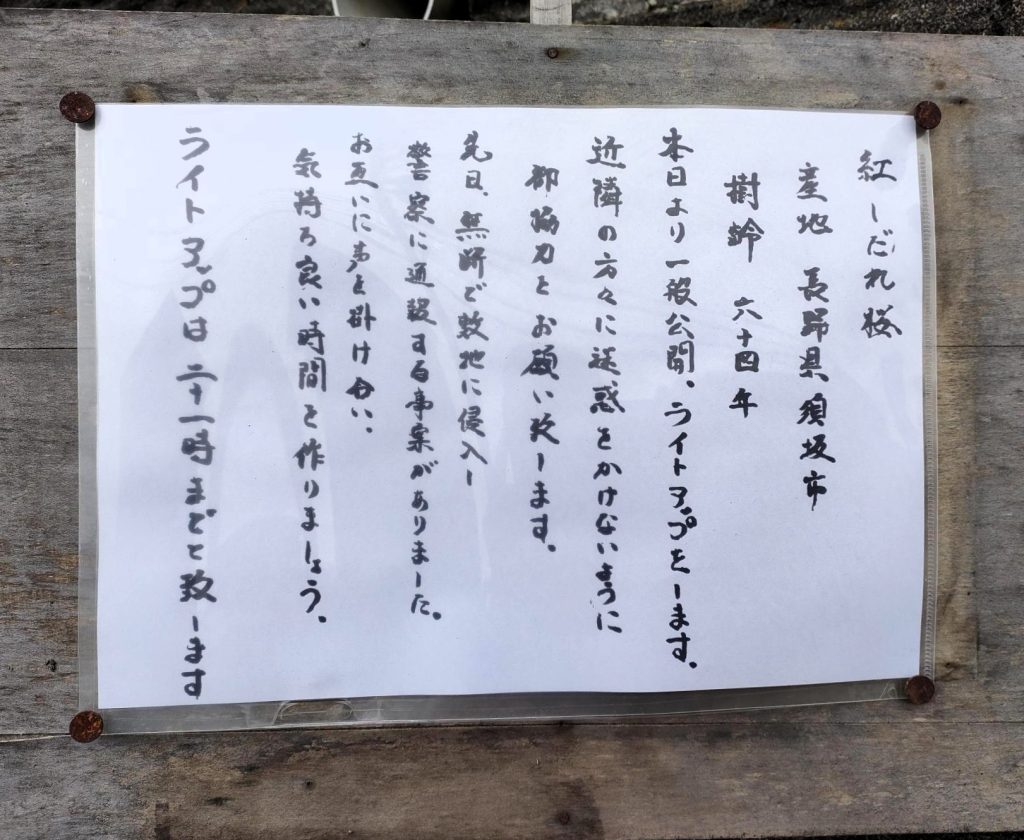 紅しだれ桜
産地 長野県須坂市
樹齢 六十四年
本日より一般公開、ライトアップをします。
近隣の方々に迷惑をかけないように
御協力とお願い致します。
先日、無断で敷地に侵入し
警察に通報する事案がありました。
お互いに声を掛け合い、
気持ち良い時間を作りましょう。
ライトアップは二十一時までと致します